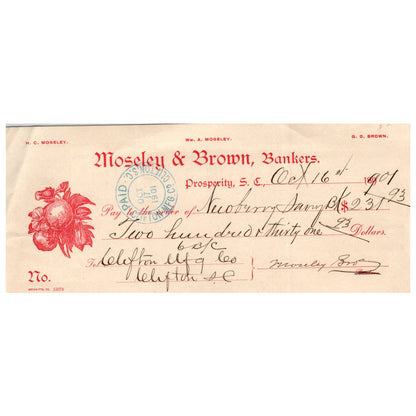 H. C. MOSELEY. Wm. A. MOSELEY. G. D. BROWN.
Moseley & Brown, Bankers.
Prosperity, S. C., Oct 16th 1901
Pay to the order of Newberry Savings Bk $231 93
Two hundred & thirty one 93 Dollars.
To Clifton Mfg Co
Clifton SC
Moseley Bros
No.
PAID